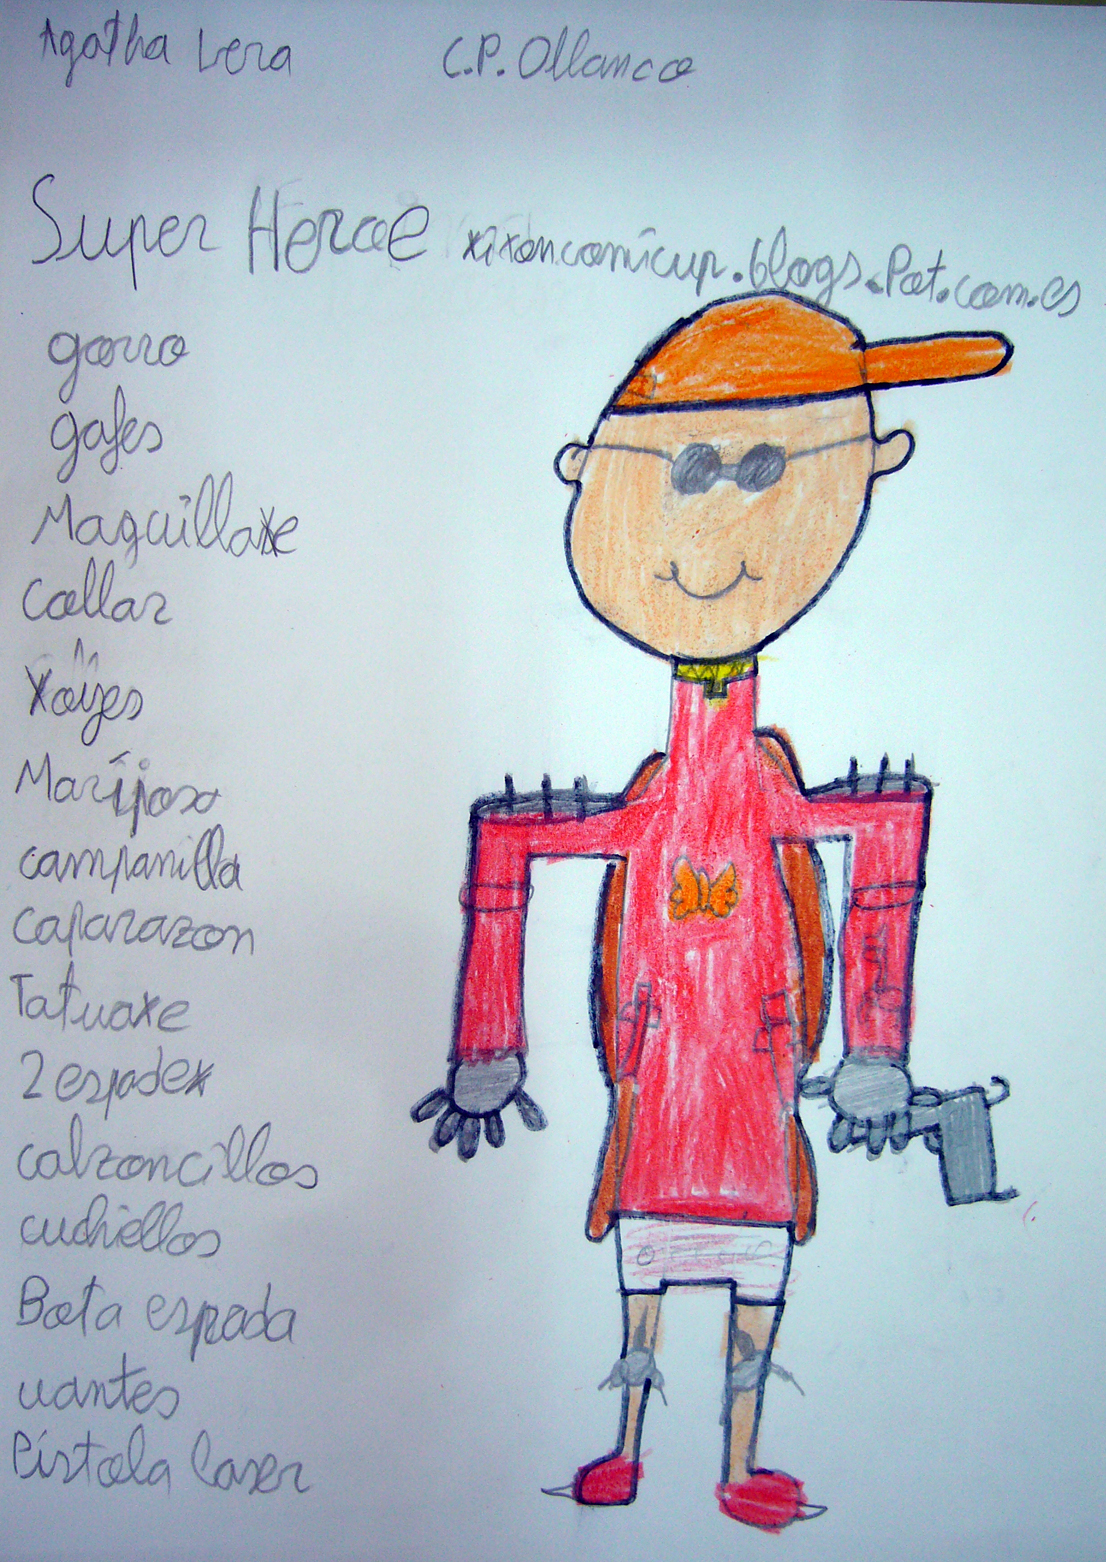 Agatha Vera C.P. Ollanco
Super Heroe xixoncomicup.blogs.Pot.com.es
gorro
gafes
Maquillaxe
Collar
Xoyes
Mariposa
campanilla
caparazon
Tatuaxe
2 espades
calzoncillos
cuchiellos
Bota espada
uantes
Pistola laser